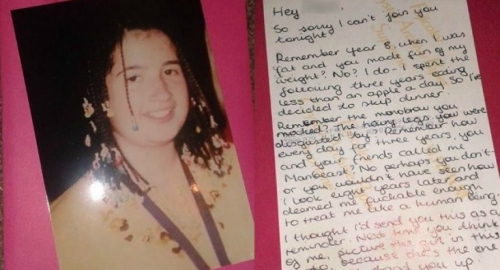 Hey
So sorry I can't join you
tonight.
Remember year 8, when I was
fat and you made fun of my
weight? No? I do - I spent the
following three years eating
less than an apple a day. So I've
decided to skip dinner.
Remember the monobrow you
mocked? The hairy legs you were
disgusted by? Remember how
every day for three years, you
and your friends called me
Manbeast? No perhaps you don't -
or you wouldn't have seen how
I look eight years later and
deemed me fuckable enough
to treat me like a human being.
I thought I'd send you this as a
reminder. Next time you think
of me, picture this girl in this
because she's the one
you up.